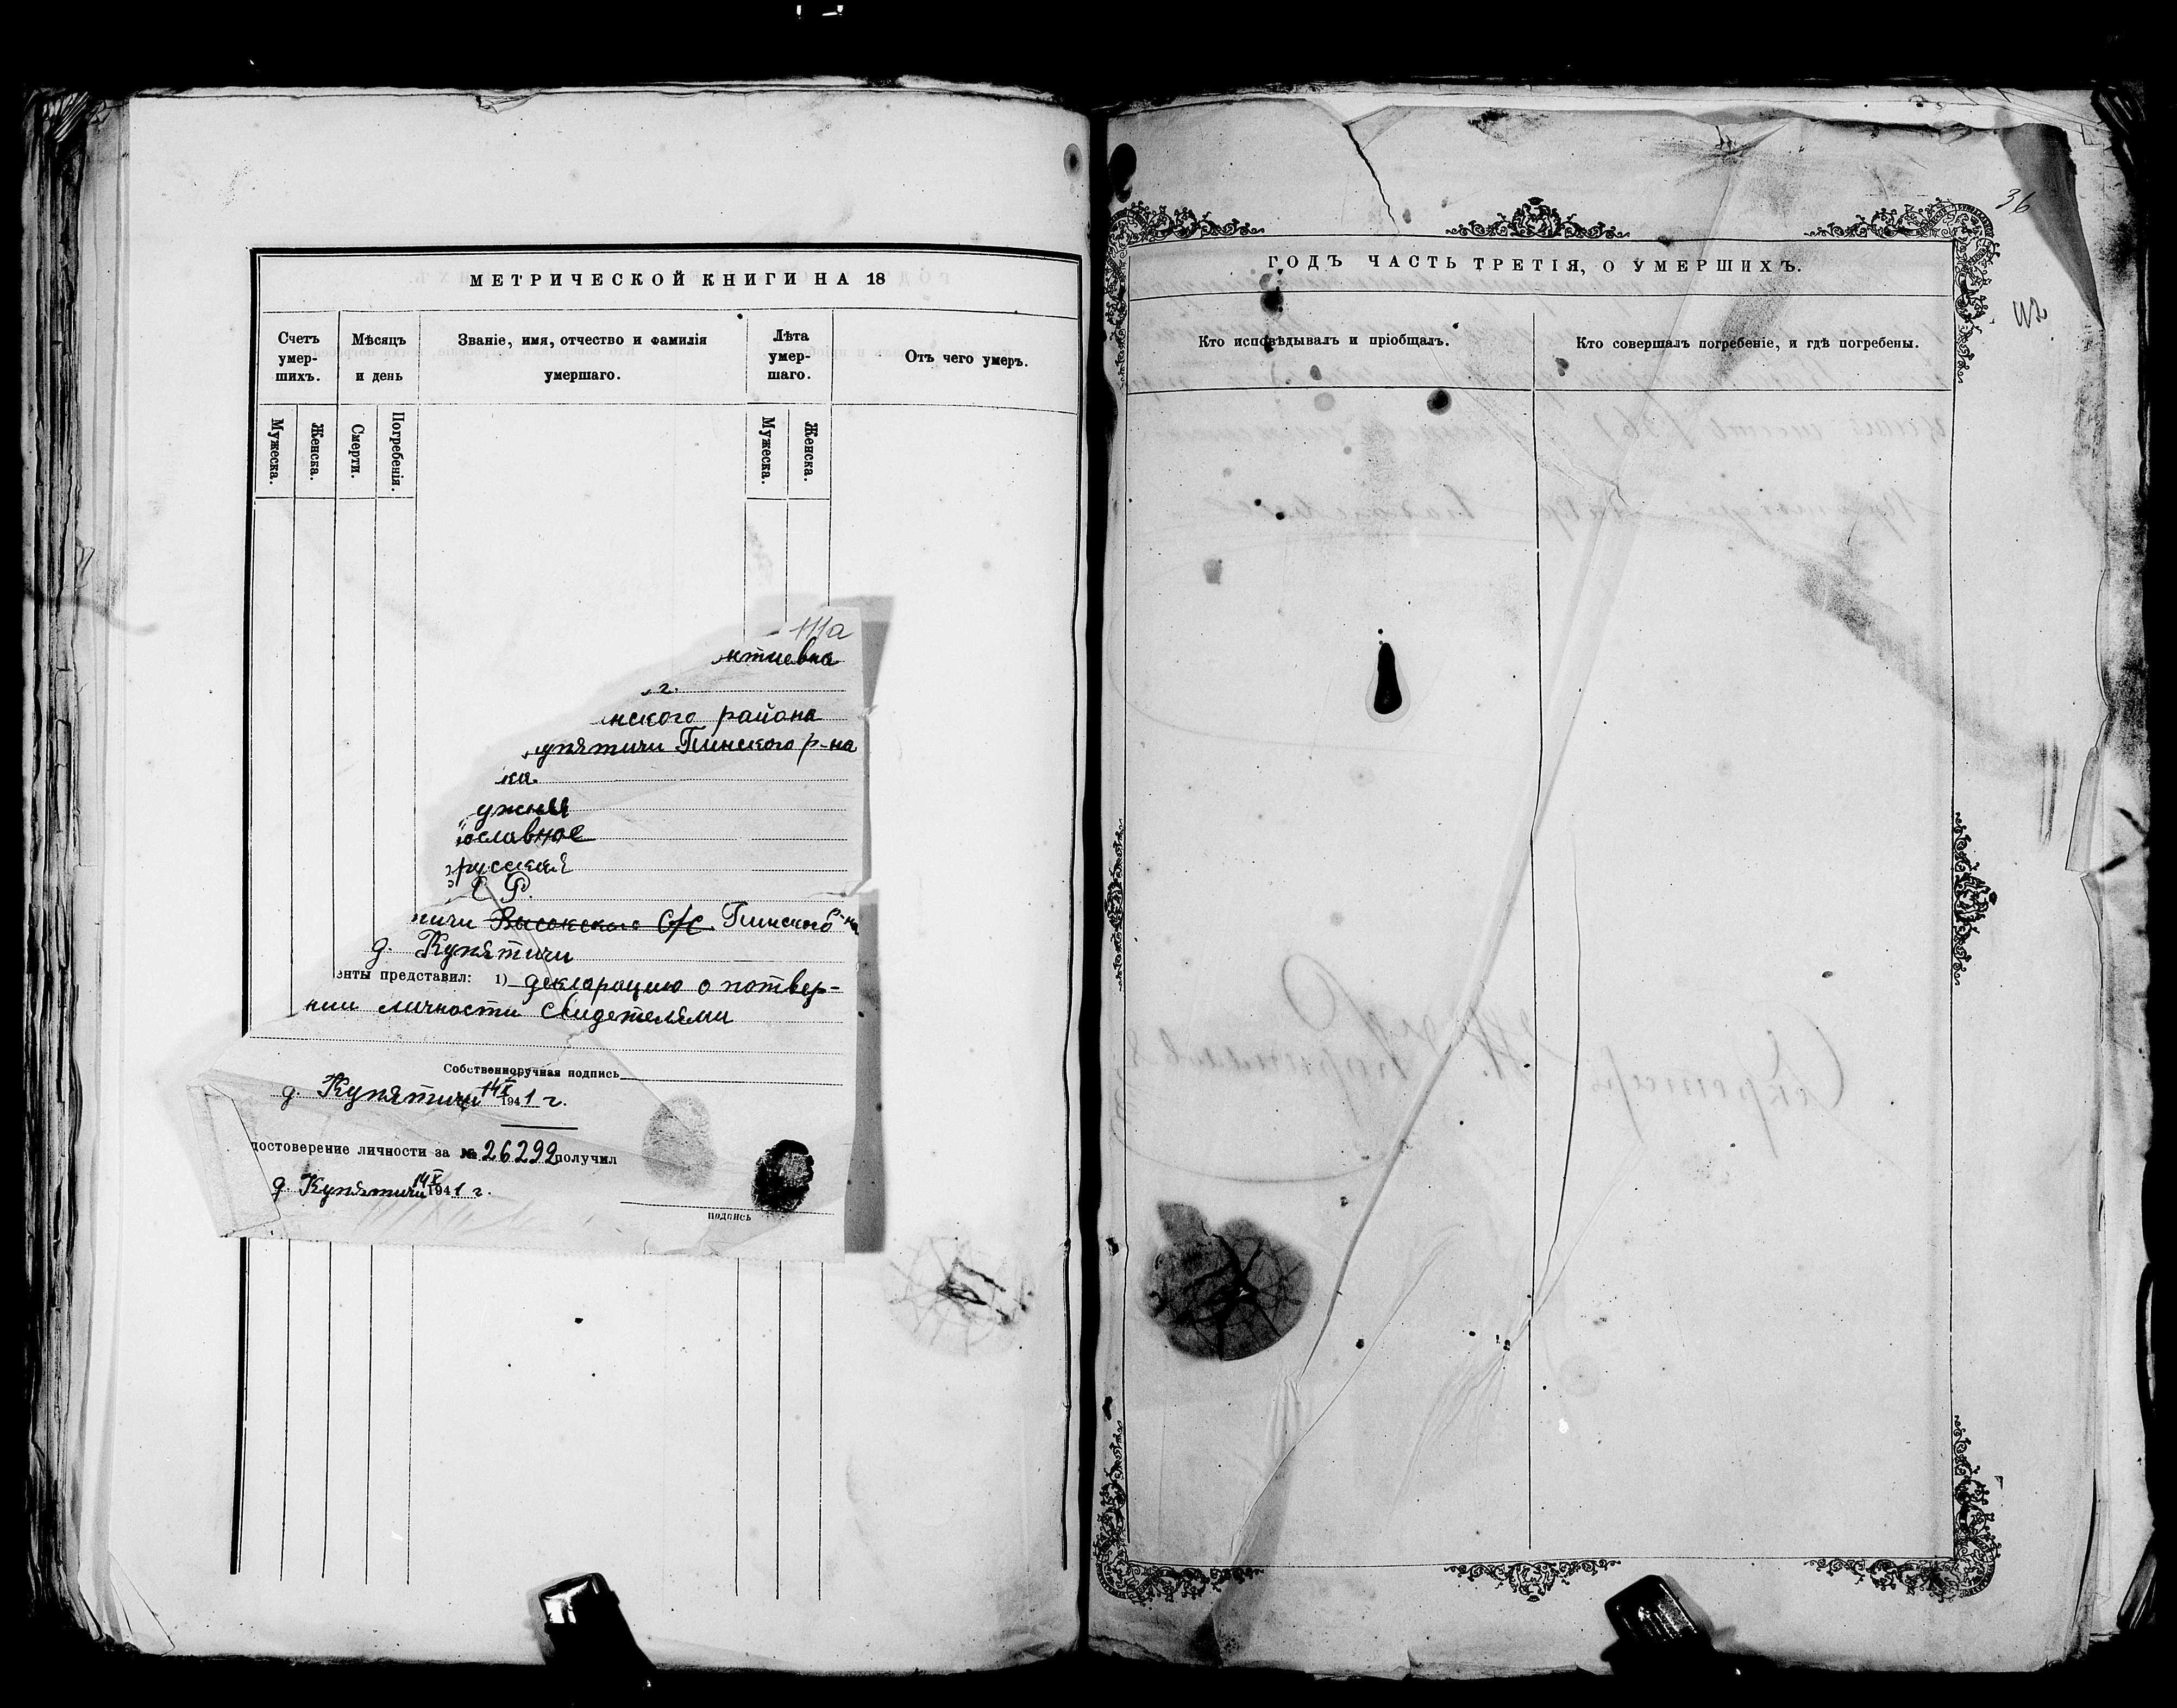 МЕТРИЧЕСКОЙ КНИГИ НА 18
Счетъ умер-шихъ.
Мѣсяцъ и день
Званіе, имя, отчество и фамилія умершаго.
Лѣта умер-шаго.
Отъ чего умеръ.
Мужеска.
Женска.
Смерти.
Погребенія.
Мужеска.
Женска.
111а
ктиевна
г.
нского района
упятичи Пинского р-на
ка.
ужняя
ославное
русская
С Р.
пичи Высокского С/С. Пинского р-на
д. Купятичи
енты представил: 1) декларацию о потвер-
нии личности свидетелями
Собственноручная подпись
д. Купятичи 14 X 1941 г.
достоверение личности за № 26292 получил
д. Купятичи 14 X 1941 г.
подпись
36
ГОДЪ ЧАСТЬ ТРЕТІЯ, О УМЕРШИХЪ.
Кто исповѣдывалъ и пріобщалъ.
Кто совершалъ погребеніе, и гдѣ погребены.